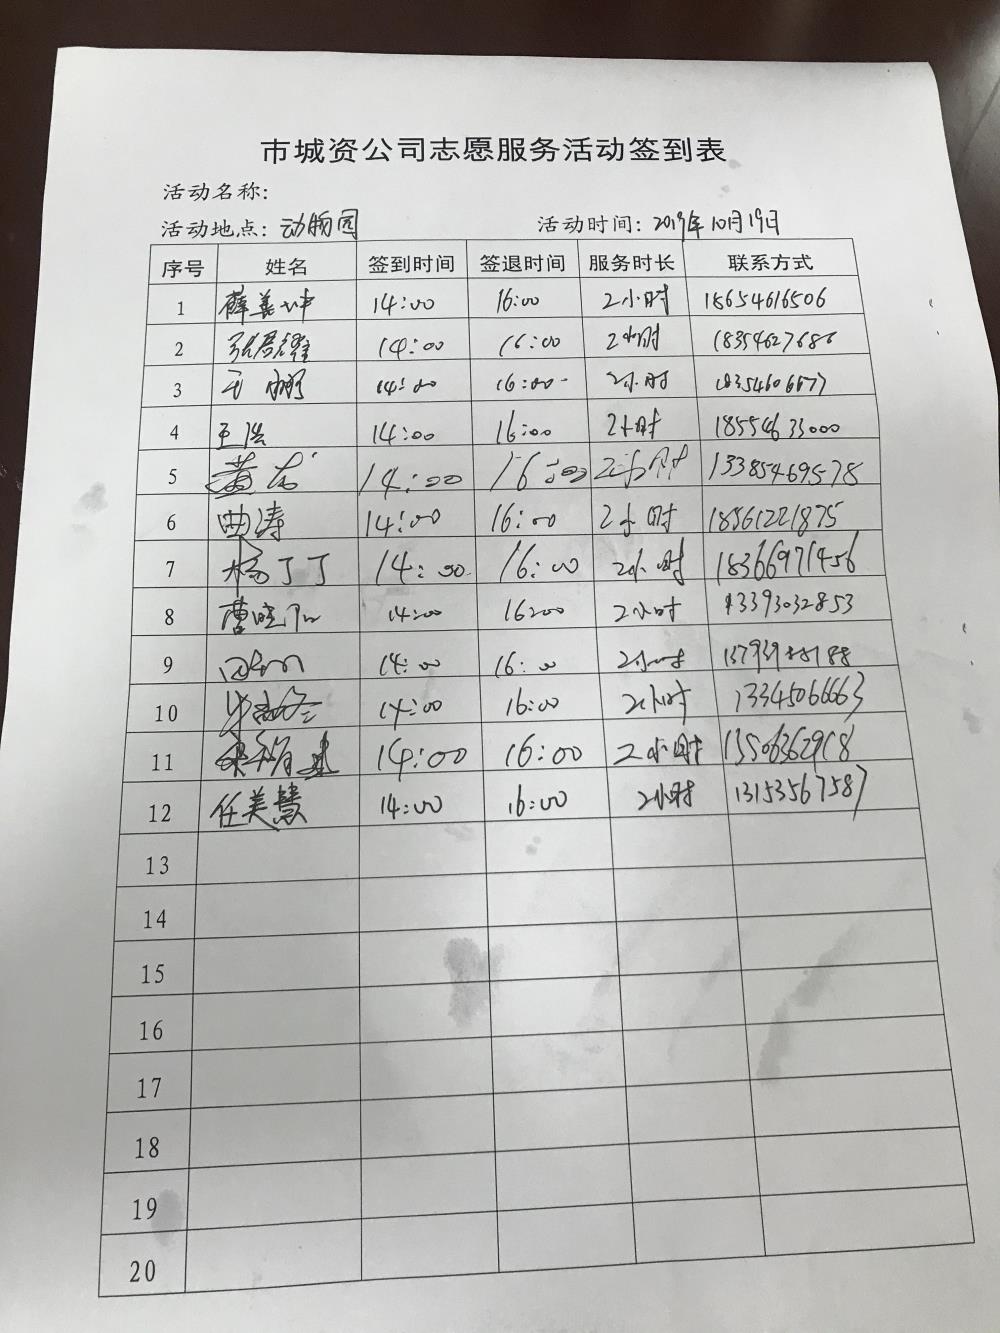 市城资公司志愿服务活动签到表
活动名称:
活动地点: 动物园 活动时间: 2019年10月19日
序号 姓名 签到时间 签退时间 服务时长 联系方式
1 薛善坤 14:00 16:00 2小时 18654616506
2 张君耀 14:00 16:00 2小时 18354627686
3 14:00 16:00 2小时 18354606677
4 王浩 14:00 16:00 2小时 18554633000
5 黄 14:00 16:00 2小时 13385469578
6 曲涛 14:00 16:00 2小时 18561221875
7 杨丁丁 14:00 16:00 2小时 18366971456
8 曹晓 14:00 16:00 2小时 13393032853
9 14:00 16:00 2小时
10 14:00 16:00 2小时 13345066663
11 14:00 16:00 2小时 13506362918
12 任美慧 14:00 16:00 2小时 13153567587
13
14
15
16
17
18
19
20